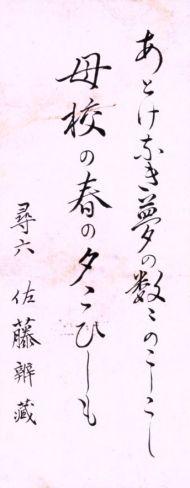 あとけなき夢の数々のこしこし
母校の春の夕こひしも
尋六 佐藤辨藏